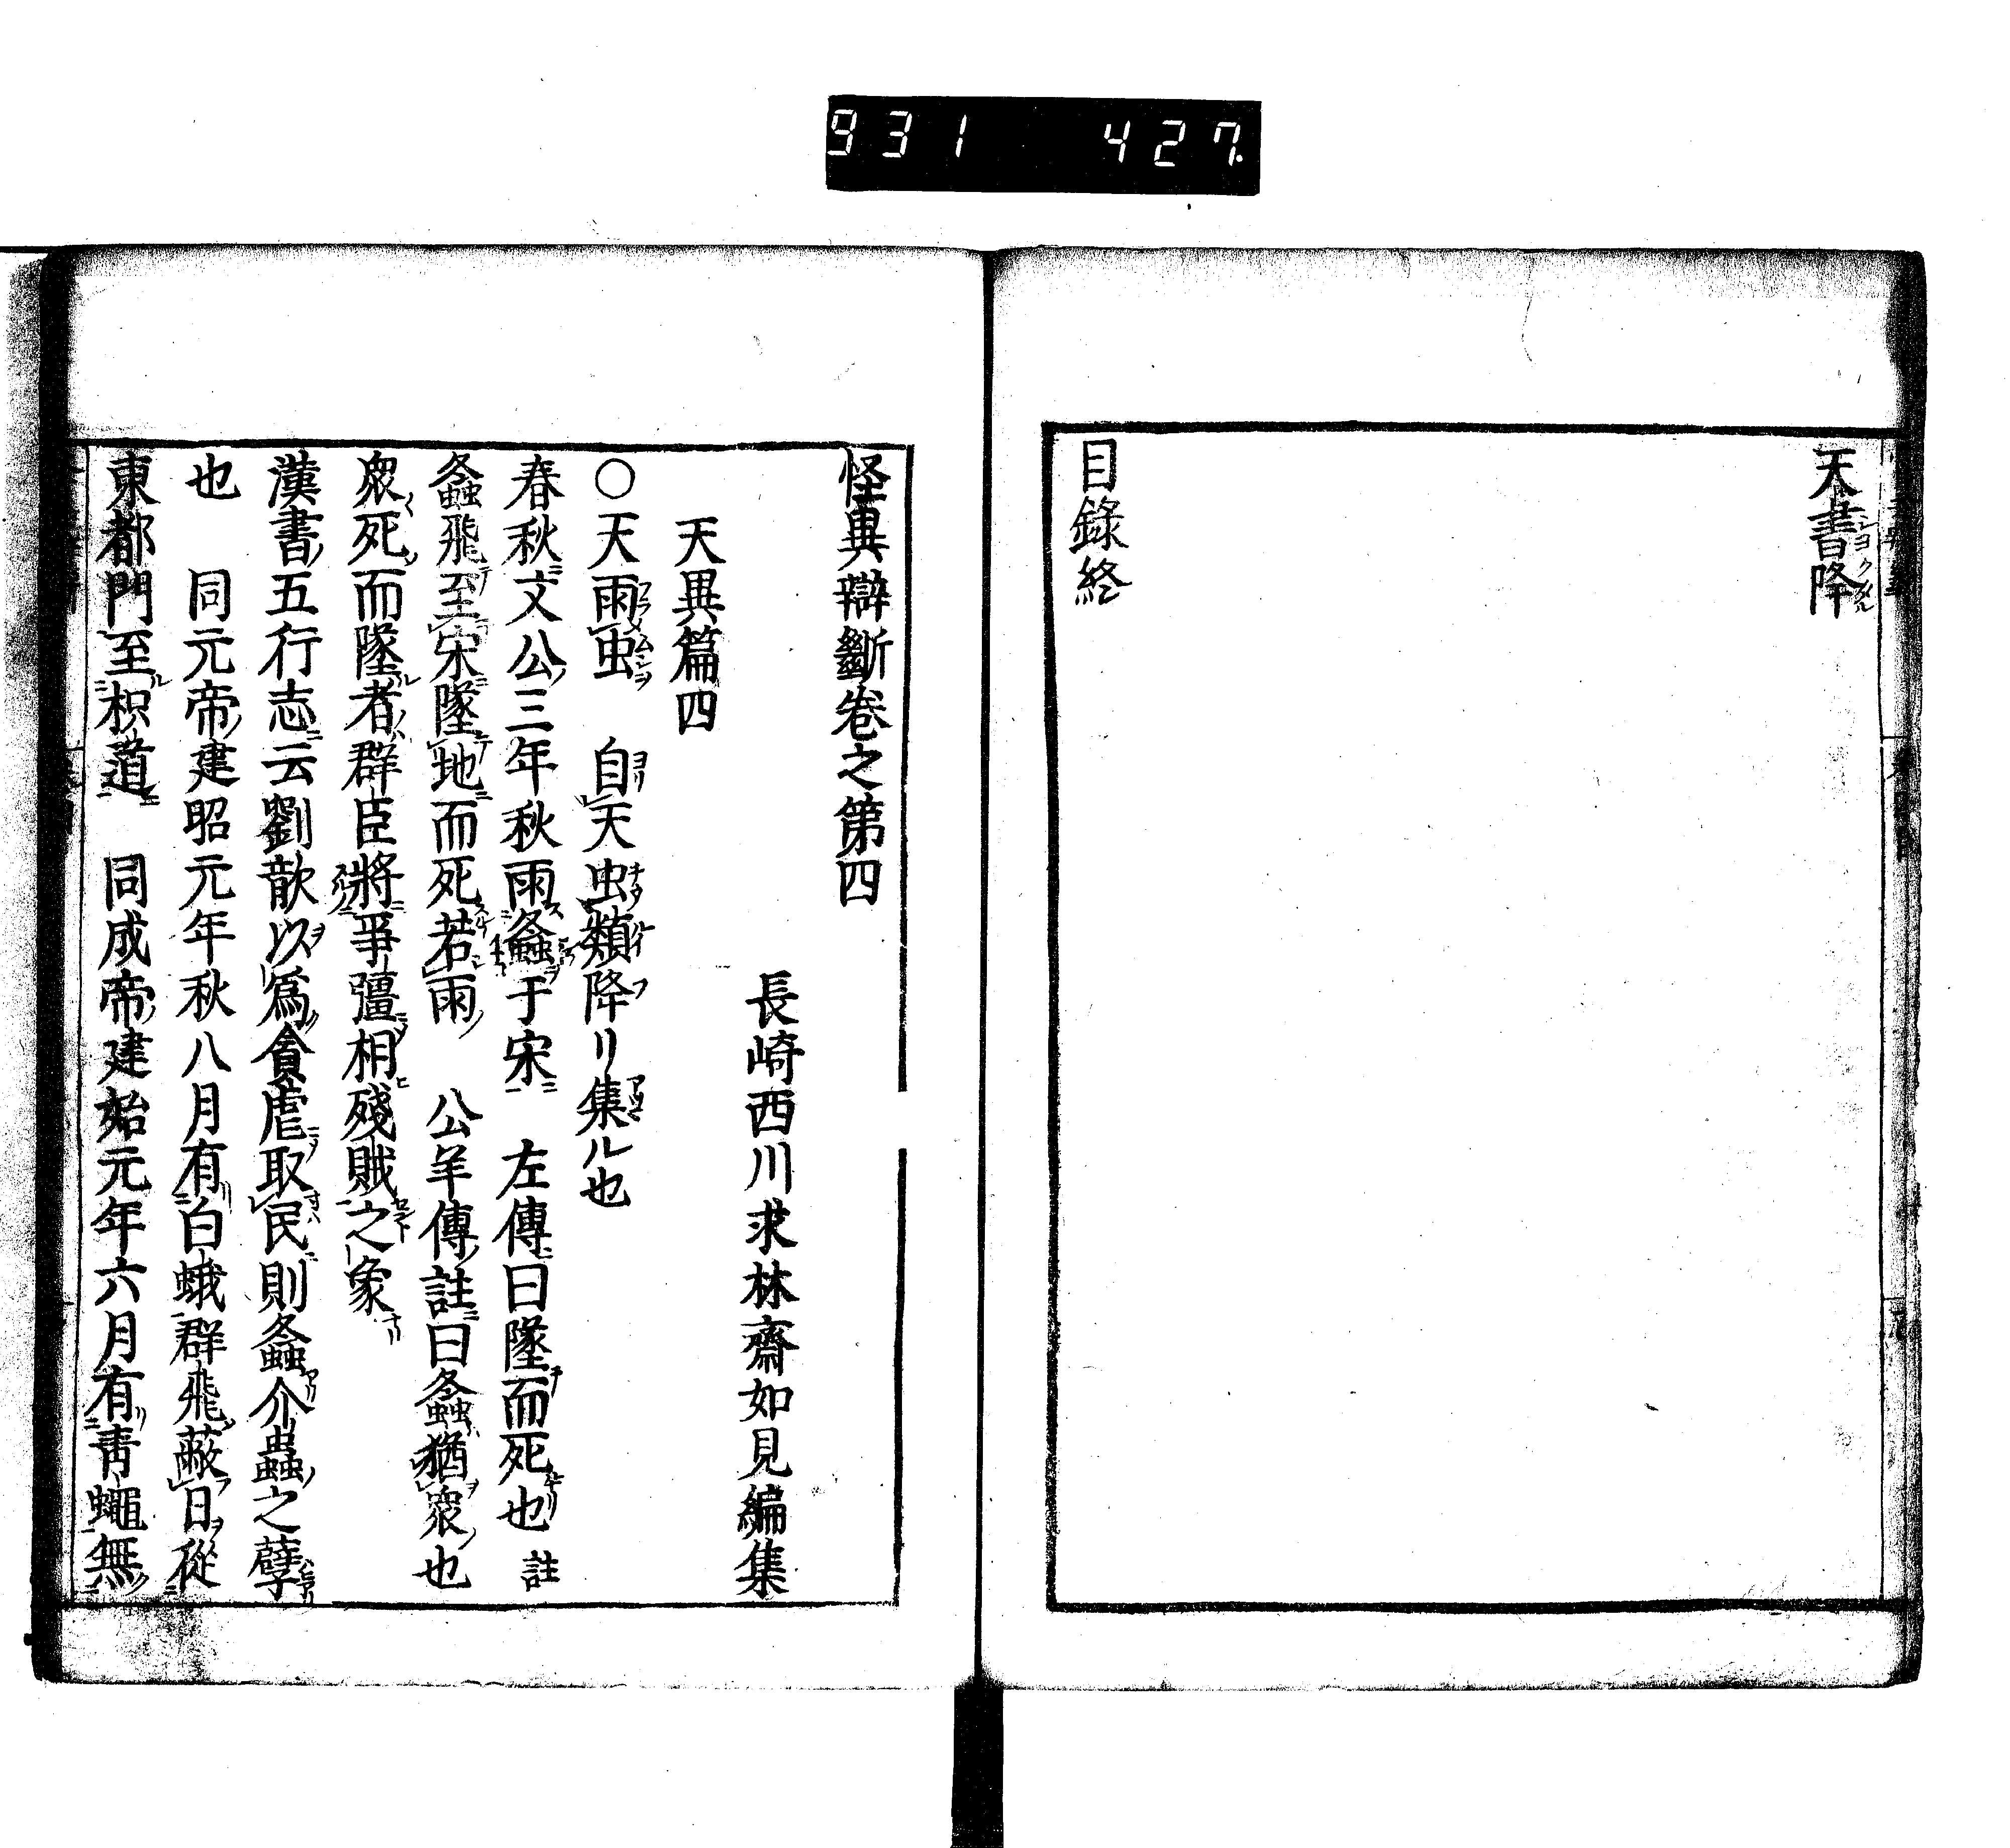 931 427
天書降
目錄終
怪異辯斷卷之第四
長崎西川求林齋如見編集
天異篇四
○天雨虫 自天虫類降リ集ル也
春秋文公三年秋雨螽于宋 左傳曰墜而死也 註
螽飛至宋墜地而死若雨 公羊傳註曰螽猶衆也
衆死而墜者群臣將爭彊相殘賊之象
漢書五行志云劉歆以爲貪虐取民則螽介蟲之孽
也 同元帝建昭元年秋八月有白蛾群飛蔽日從
東都門至枳道 同成帝建始元年六月有靑蠅無